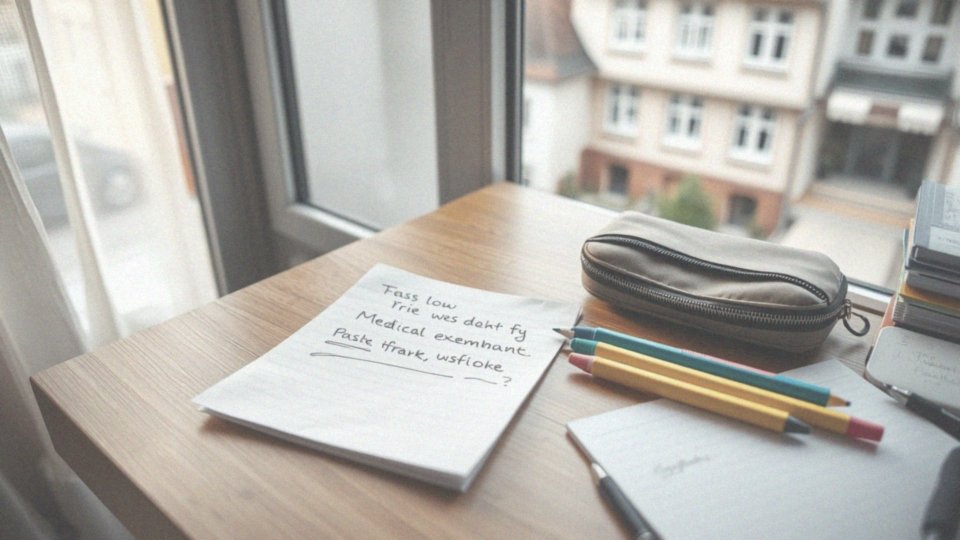 Tass low
rrie wes daht fy
Medical exemhant
Paste tfrark, wsfloke
?